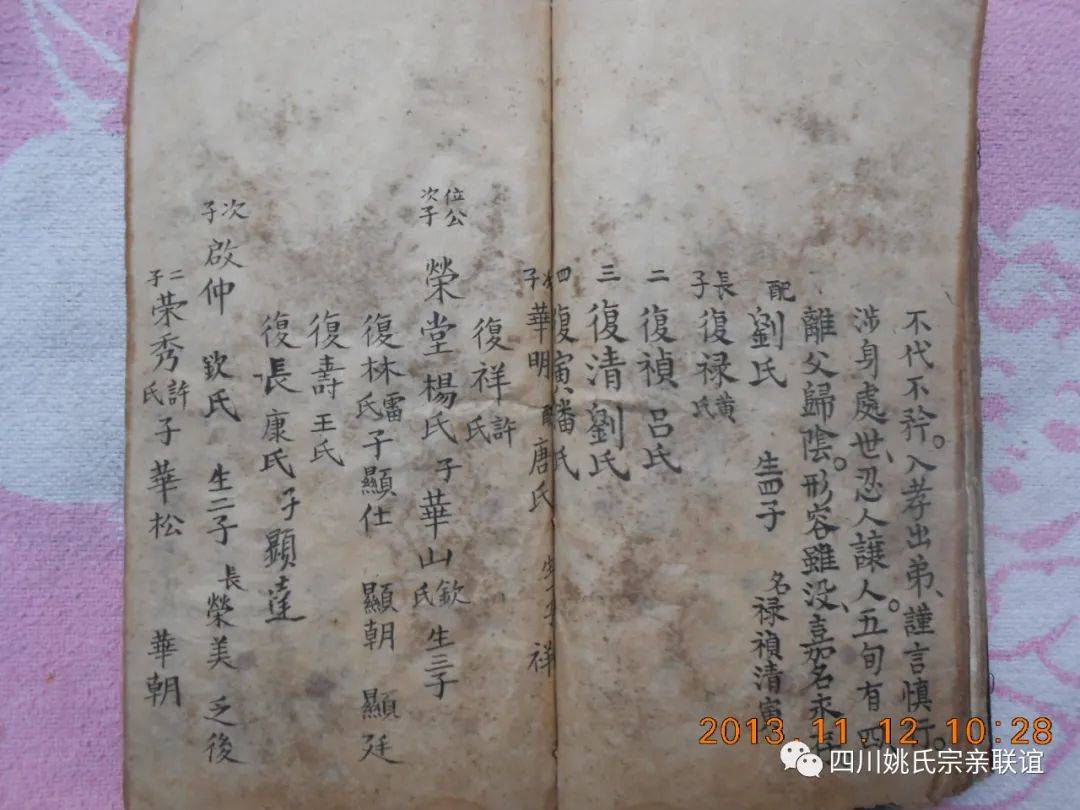 不代不矜。入孝出弟、謹言慎行。
涉身處世、忍人讓人。五旬有四、
離父歸陰。形容雖没、嘉名永在
配 劉氏 生四子 名禄禎清寅
長子 復禄 黄氏
二 復禎 呂氏
三 復清 劉氏
四 復寅 潘氏
次子 華明 配 唐氏 生子 祥
復祥 許氏
位公次子 榮堂 楊氏 子 華山 欽氏 生三子
復林 雷氏 子 顯仕 顯朝 顯廷
復壽 王氏
復長 康氏 子 顯達
次子 啟仲 欽氏 生二子 長 榮美 乏後
二子 荣秀 許氏 子 華松 華朝
2013.11.12 10:28
四川姚氏宗亲联谊